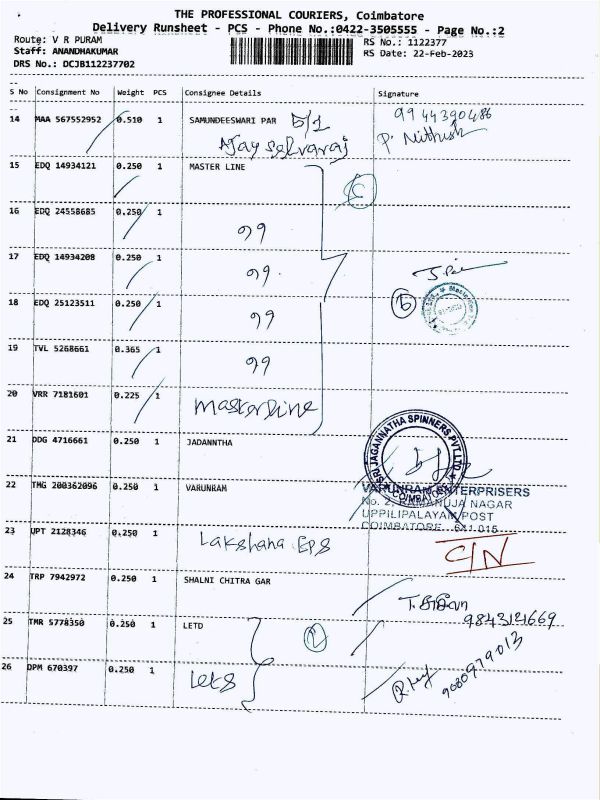 THE PROFESSIONAL COURIERS, Coimbatore
Delivery Runsheet - PCS - Phone No.:0422-3505555 - Page No.:2
Route: V R PURAM
RS No.: 1122377
Staff: ANANDHAKUMAR
RS Date: 22-Feb-2023
DRS No.: DCJB112237702
S No Consignment No Weight PCS Consignee Details Signature
14 MAA 567552952 0.510 1 SAMUNDEESWARI PAR 5/1 9944390486
Ajay Selvaraj P. Nithish
15 EDQ 14934121 0.250 1 MASTER LINE
16 EDQ 24558685 0.250 1
17 EDQ 14934208 0.250 1
18 EDQ 25123511 0.250 1
19 TVL 5268661 0.365 1
20 VRR 7181601 0.225 1 MasterLine
21 DDG 4716661 0.250 1 JADANNTHA
SRI JAGANNATHA SPINNERS PVT.LTD
COIMBATORE
22 TMG 200362096 0.250 1 VARUNRAM
VARUNRAM ENTERPRISERS
No. 2, RAMANUJA NAGAR
UPPILIPALAYAM POST
COIMBATORE - 641 015
23 UPT 2128346 0.250 1 Lakshana EPS C/N
24 TRP 7942972 0.250 1 SHALNI CHITRA GAR
9843121669
25 TMR 5778350 0.250 1 LETD
26 DPM 670397 0.250 1 Lets 9080979013